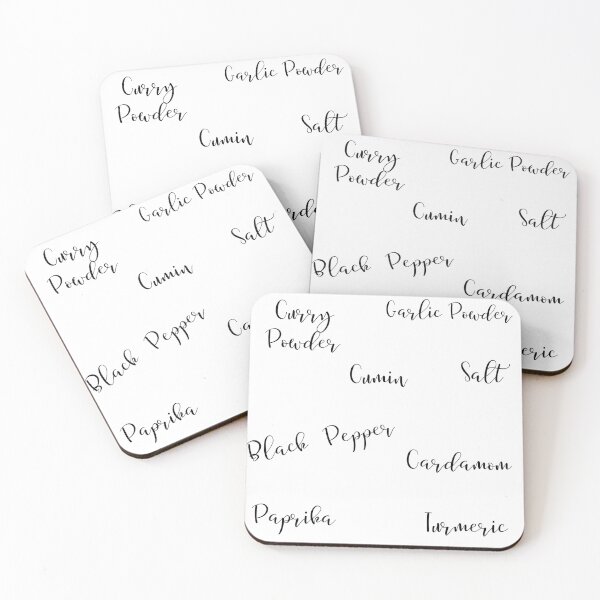 Curry Powder
Garlic Powder
Cumin
Salt
Curry Powder
Garlic Powder
Cumin
Salt
Black Pepper
Cardamom
Curry Powder
Garlic Powder
Cumin
Salt
Black Pepper
Paprika
Curry Powder
Garlic Powder
Cumin
Salt
Black Pepper
Cardamom
Paprika
Turmeric